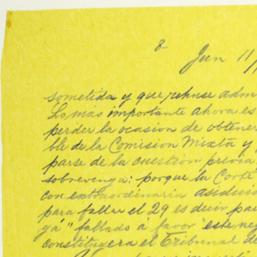 2 Jun 11/
sometida y que rehuse adm
Lo más importante ahora es
perder la ocasion de obtener
ble de la Comision Mixta y
parse de la cuestion previa
sobrevenga: porque la Corte
con extraordinaria asidui
para faller el 29 es decir pas
ya" fallado a favor "este ne
constituyera el Tribunal de